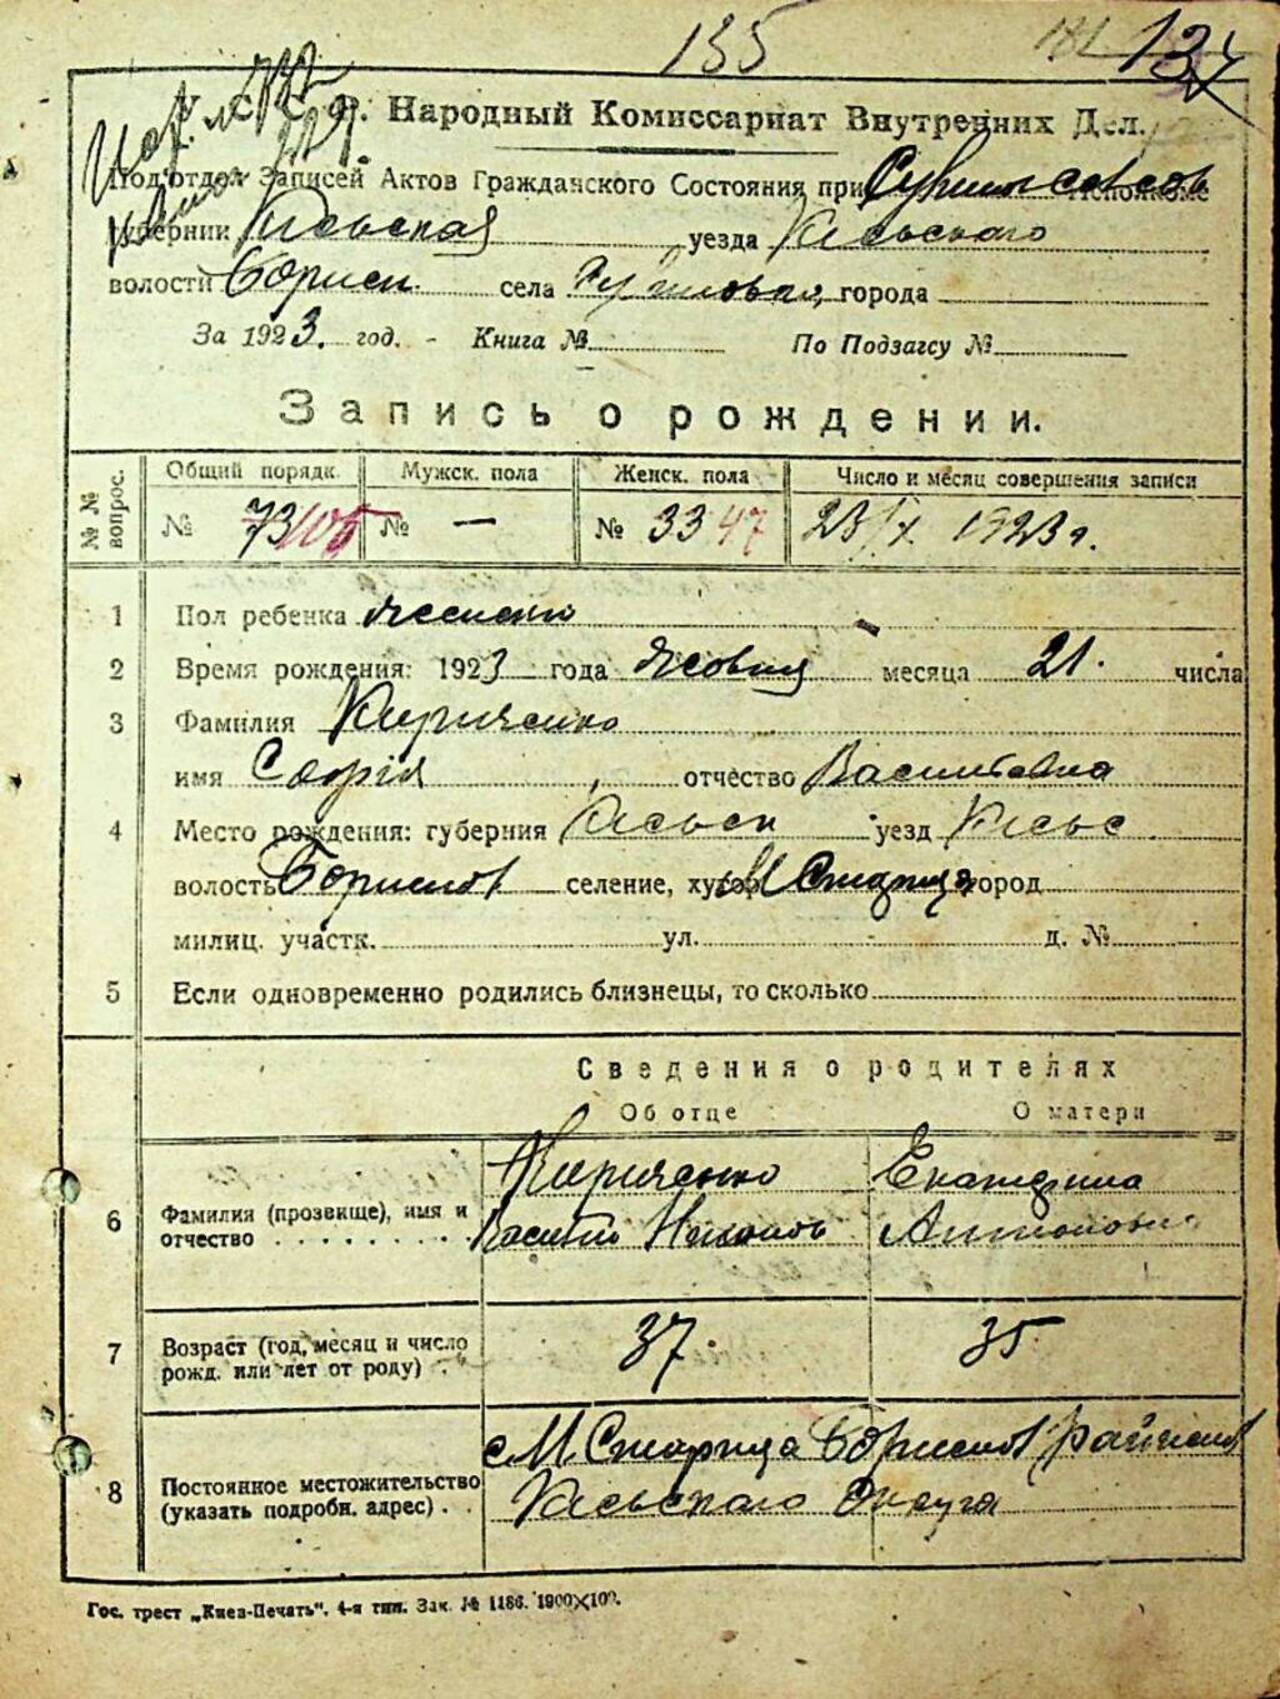 135 181 137
У. С. С. Р. Народный Комиссариат Внутренних Дел.
Подотдел Записей Актов Гражданского Состояния при Исполкоме
Губернии Киевская уезда Киевского
волости Борисп. села города
За 1923. год. - Книга № По Подзагсу №
Запись о рождении.
№ № вопрос. Общий порядк. Мужск. пола Женск. пола Число и месяц совершения записи
№ 73 105 № — № 33 47 23/X 1923 г.
1 Пол ребенка женский
2 Время рождения: 1923 года месяца 21. числа
3 Фамилия Кириченко
имя Софія отчество Васильевна
4 Место рождения: губерния Киевск уезд Киевс
волость Бориспол селение, хутор М Старица город
милиц. участк. ул. д. №
5 Если одновременно родились близнецы, то сколько
Сведения о родителях
Об отце О матери
6 Фамилия (прозвище), имя и отчество Кириченко Екатерина
Василий Антоновна
7 Возраст (год, месяц и число рожд. или лет от роду) 37. 35
8 Постоянное местожительство (указать подробн. адрес) с М. Старица Бориспол
Киевского Округа
Гос. трест „Киев-Печать". 4-я тип. Зак. № 1186. 1900×100.